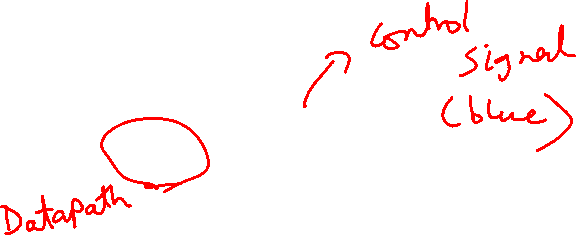 control
signal
(blue)
Datapath